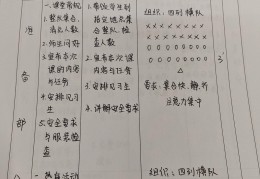 准
备
部
一、课堂常规
1.整队集合，
清点人数
2.师生问好
3.宣布本次
课的内容
与任务
4.安排见习
生
5.安全要求
与服装检
查
1.体育委员到
指定地点集
合整队，检
查人数
2.宣布本次课
的内容与任务
3.安排见习生
4.讲解安全要求
组织：四列横队
××××××××
××××××××
○○○○○○○○
○○○○○○○○
△
要求：集合快、静、齐
注意力集中
3'
组织：四列横队